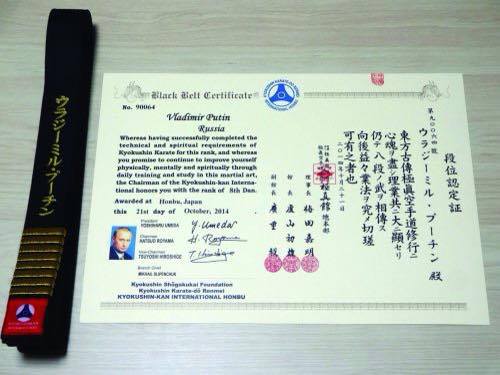 ウラジーミル・プーチン
Black Belt Certificate
No. 90064
Vladimir Putin
Russia
Whereas having successfully completed the
technical and spiritual requirements of
Kyokushin Karate for this rank, and whereas
you promise to continue to improve yourself
physically, mentally and spiritually through
daily training and study in this martial art,
the Chairman of the Kyokushin-kan Interna-
tional honors you with the rank of 8th Dan.
Awarded at Honbu, Japan
this 21st day of October, 2014
President
YOSHINARU UMEDA
Y. Umeda
Chairman
HATSUO ROYAMA
H. Royama
Vice-Chairman
TSUYOSHI HIROSHIGE
T. Hiroshige
Branch Chief
MIKHAIL SLIPENCHUK
Kyokushin Shōgakukai Foundation
Kyokushin Karate-dō Renmei
KYOKUSHIN-KAN INTERNATIONAL HONBU
段位認定証
第九〇〇六四號
ウラジーミル・プーチン 殿
東方古傳極眞空手道修行ニ
心魂ヲ盡シ理業共ニ大ニ顯セリ
仍テ八段ノ武ヲ相傳ス
向後益々業法ヲ究メ切瑳
可有之者也
二〇一四年十月二十一日
極眞館 總本部
理事長 梅田嘉明
館長 盧山初雄
副館長 廣重毅